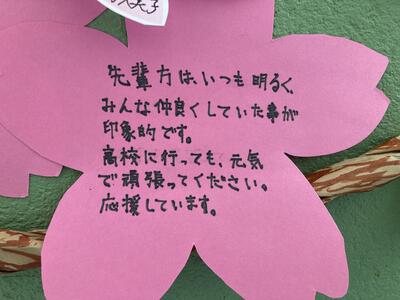 先輩方は、いつも明るく、
みんな仲良くしていた事が
印象的です。
高校に行っても、元気
で頑張ってください。
応援しています。